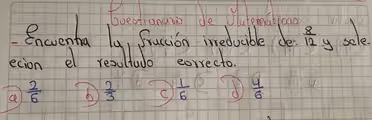 Cuestionario de Matemáticas
- Encuentra la fracción irreducible de 8/12 y sele
ecion el resultado correcto.
a) 2/6 b) 2/3 c) 1/6 d) 4/6